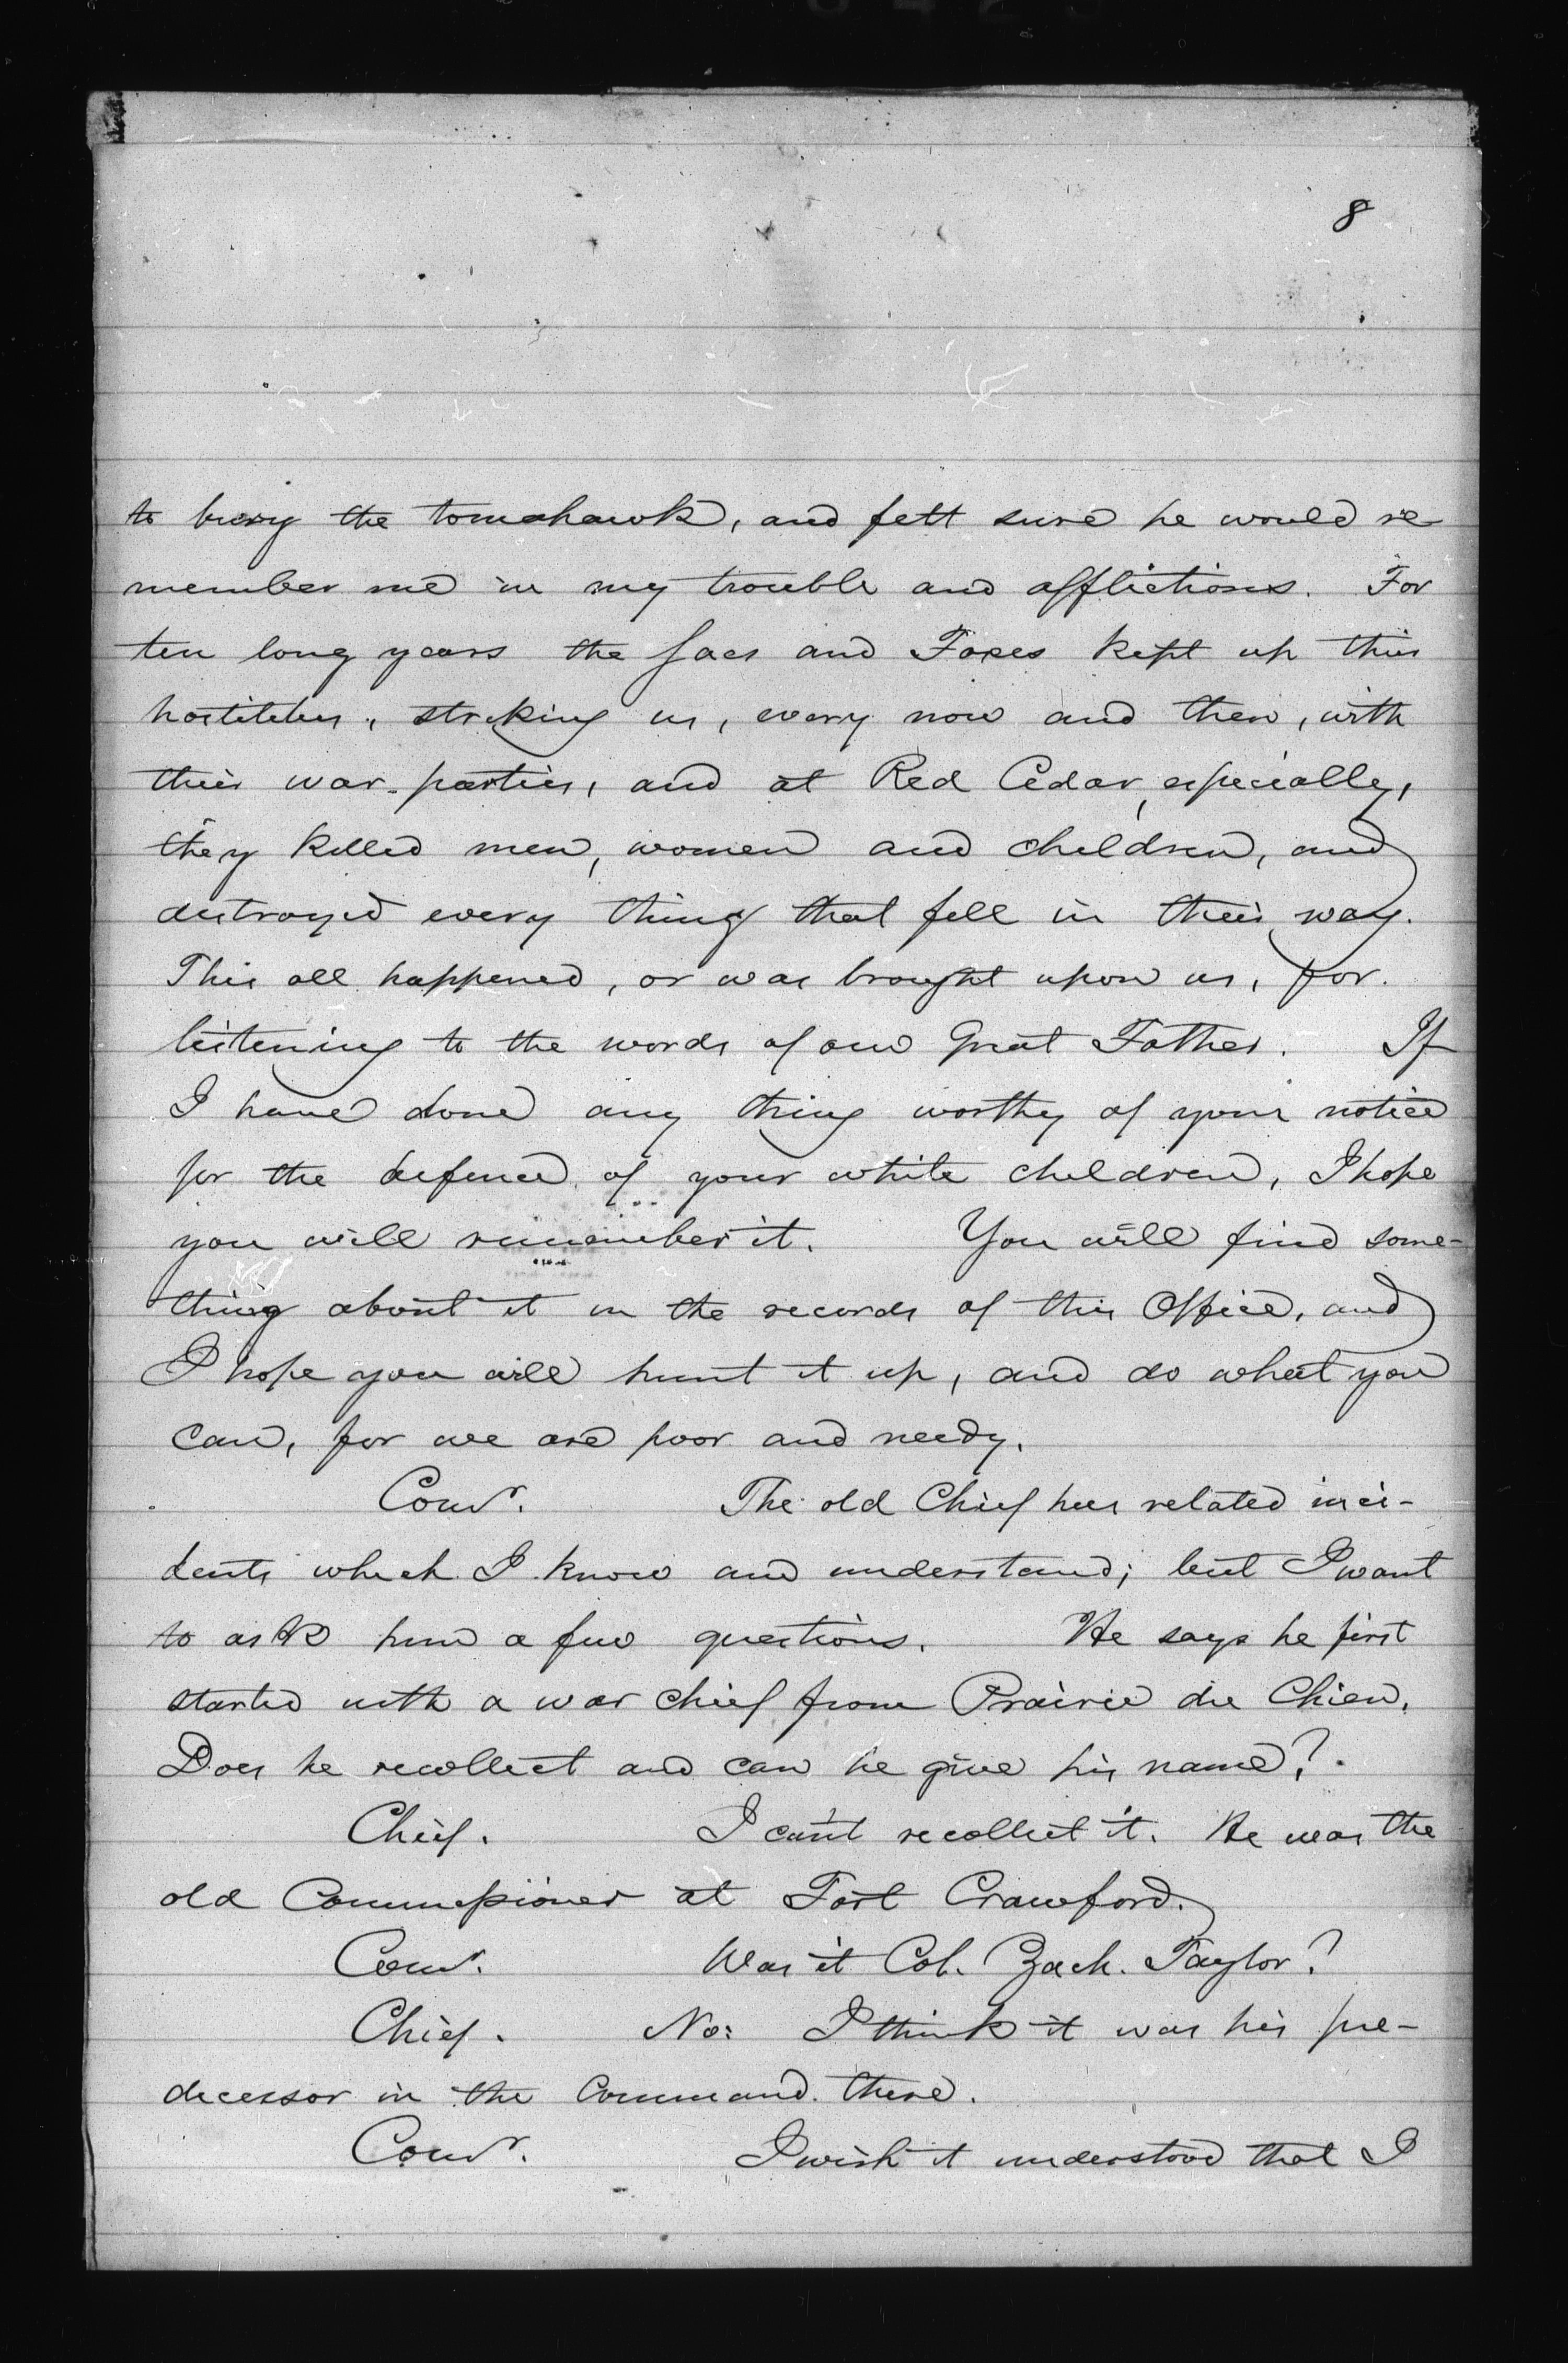 8
to bury the tomahawk, and felt sure he would re-
member me in my trouble and afflictions. For
ten long years the Sacs and Foxes kept up their
hostilities, striking us, every now and then, with
their war-parties, and at Red Cedar, especially,
they killed men, women and children, and
destroyed every thing that fell in their way.
This all happened, or was brought upon us, for
listening to the words of our Great Father. If
I have done any thing worthy of your notice
for the defence of your white children, I hope
you will remember it. You will find some-
thing about it in the records of this Office, and
I hope you will hunt it up, and do what you
can, for we are poor and needy.
Comr. The old Chief has related inci-
dents which I know and understand; but I want
to ask him a few questions. He says he first
started with a war chief from Prairie du Chien.
Does he recollect and can he give his name?
Chief. I can't recollect it. He was the
old Commissioner at Fort Crawford.
Comr. Was it Col. Zach. Taylor?
Chief. No: I think it was his pre-
decessor in the Command there.
Comr. I wish it understood that I